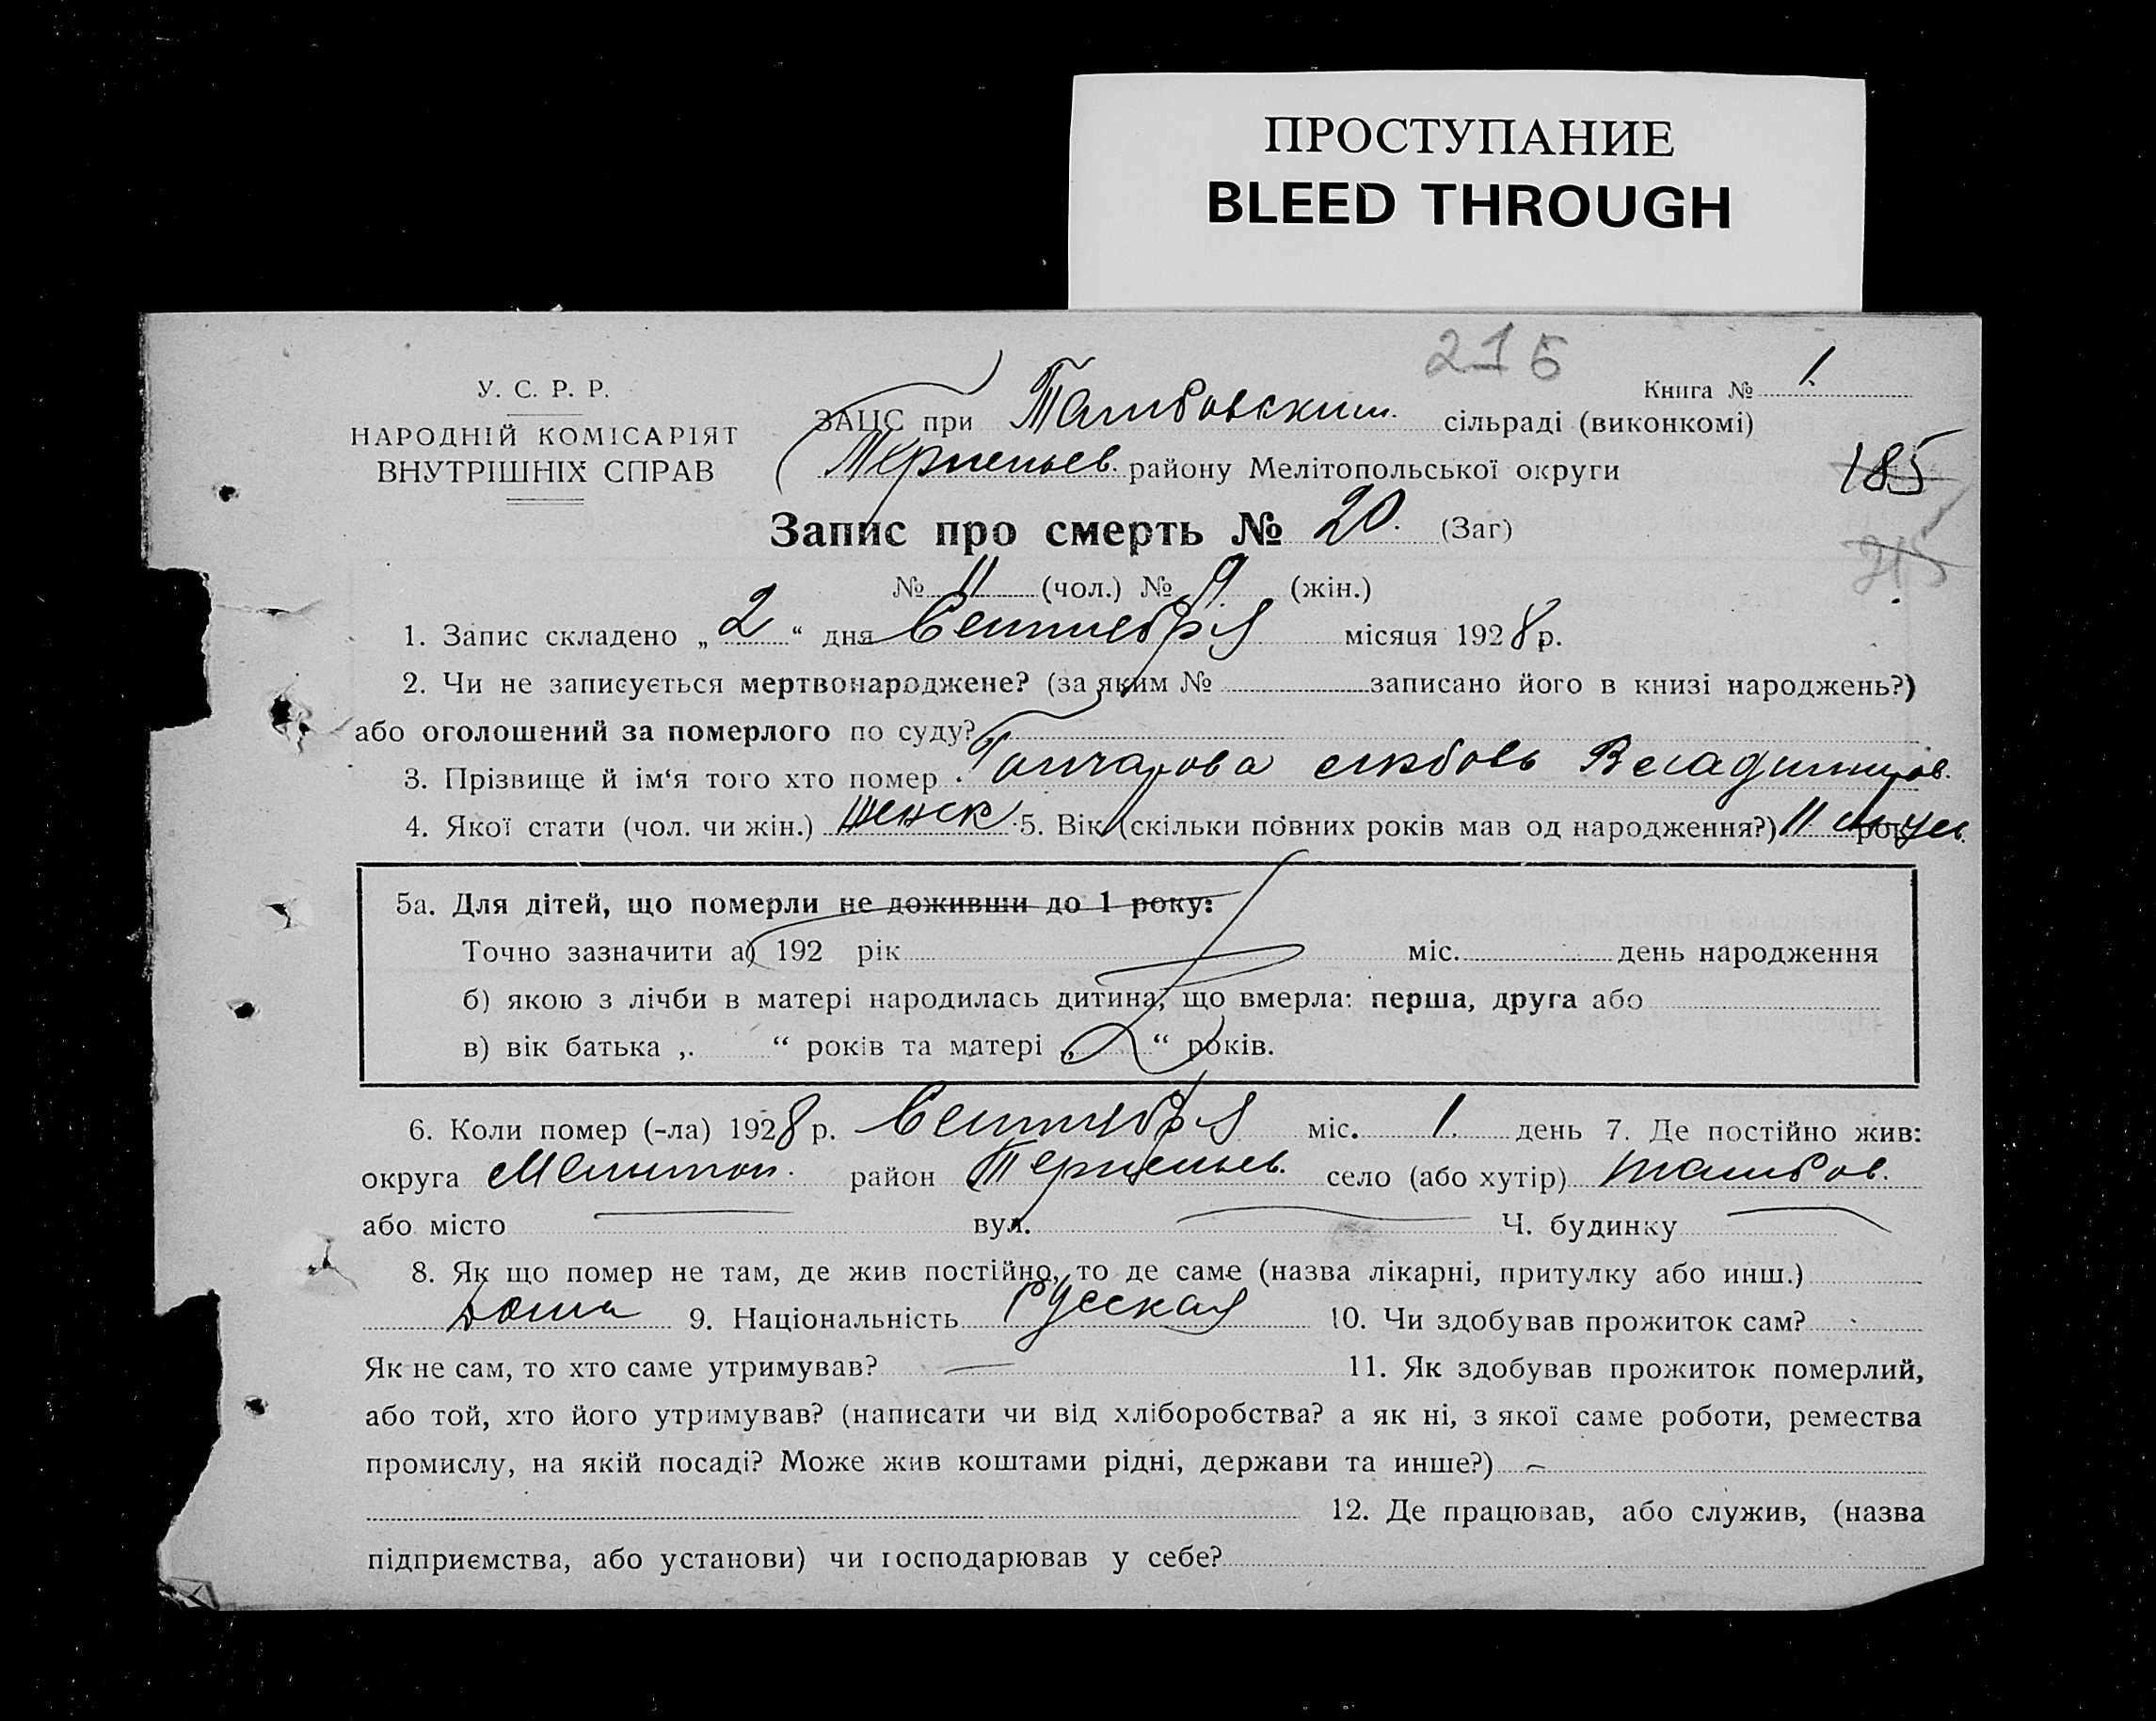 ПРОСТУПАНИЕ
BLEED THROUGH
215
У. С. Р. Р.
НАРОДНІЙ КОМІСАРІЯТ
ВНУТРІШНІХ СПРАВ
Книга № 1.
ЗАЦС при Тамбовским. сільраді (виконкомі)
Терпеньев. району Мелітопольської округи
185
Запис про смерть № 20. (Заг)
215
№ 11 (чол.) № 9. (жін.)
1. Запис складено „ 2 “ дня Сентября місяця 1928 р.
2. Чи не записується мертвонароджене? (за яким № записано його в книзі народжень?)
або оголошений за померлого по суду?
3. Прізвище й ім‘я того хто помер Гончарова Любовь Владимиров.
4. Якої статі (чол. чи жін.) Женск 5. Вік (скільки повних років мав од народження?) 11 рок.
5а. Для дітей, що померли не доживши до 1 року:
Точно зазначити а) 192 рік міс. день народження
б) якою з лічби в матері народилась дитина, що вмерла: перша, друга або
в) вік батька „ “ років та матері „ “ років.
6. Коли помер (-ла) 1928 р. Сентября міс. 1. день 7. Де постійно жив:
округа Мелитоп. район Терпеньев. село (або хутір) Тамбов.
або місто — вул. — Ч. будинку —
8. Як що помер не там, де жив постійно, то де саме (назва лікарні, притулку або инш.)
Дома 9. Національність Русская 10. Чи здобував прожиток сам?
Як не сам, то хто саме утримував? — 11. Як здобував прожиток померлий,
або той, хто його утримував? (написати чи від хліборобства? а як ні, з якої саме роботи, ремества
промислу, на якій посаді? Може жив коштами рідні, держави та инше?) —
12. Де працював, або служив, (назва
підприємства, або установи) чи господарював у себе?